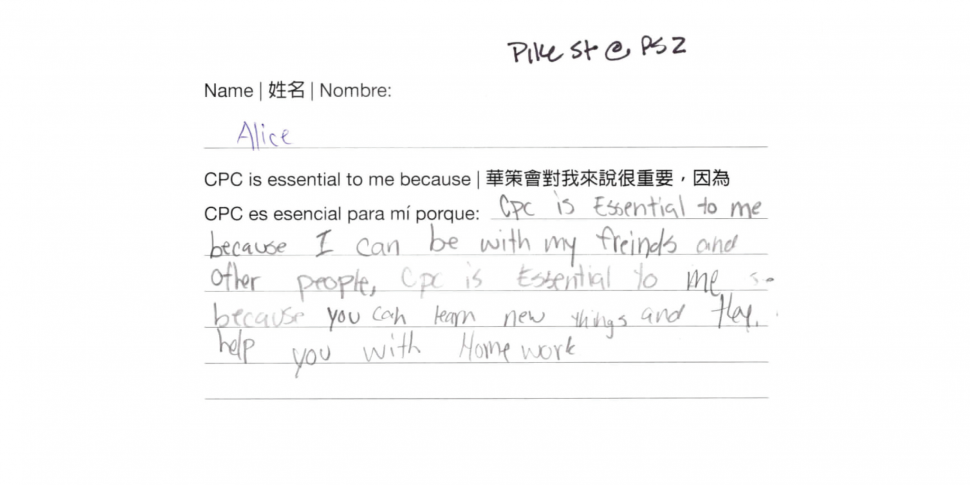 Pike St @ PS2
Name | 姓名 | Nombre:
Alice
CPC is essential to me because | 華策會對我來說很重要，因為
CPC es esencial para mí porque: Cpc is Essential to me
because I can be with my freinds and
other people, Cpc is Essential to me
because you can learn new things and they
help you with Home work